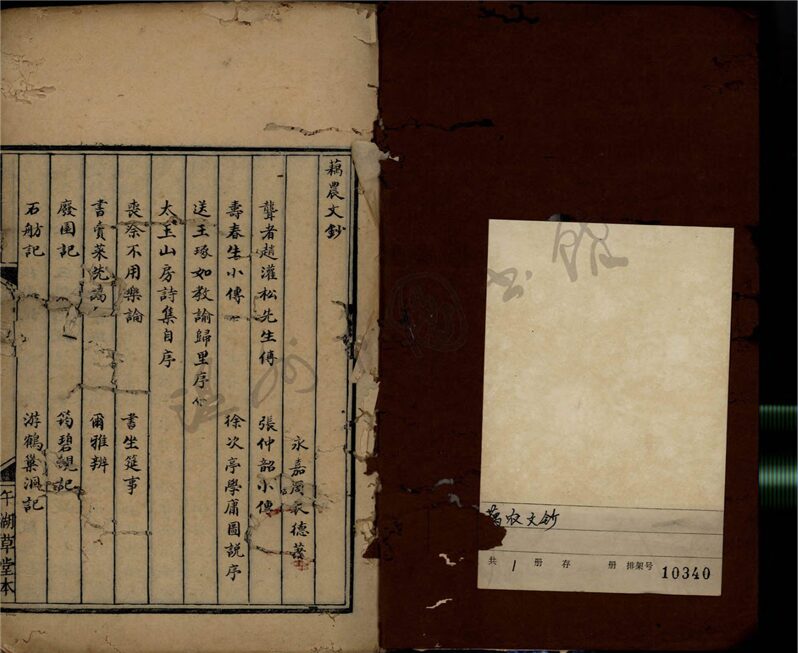 藕農文鈔
永嘉周衣德著
聾者趙灌松先生傳　張仲韶小傳
壽春生小傳　徐次亭學庸圖說序
送王琢如教諭歸里序
太玉山房詩集自序
喪祭不用樂論　書坐筵事
書賣菜先
廢園記　筠碧硯記
石舫記　游鶴巢洞記
午湖草堂本
文鈔
共 1 册 存 册 排架号 10340